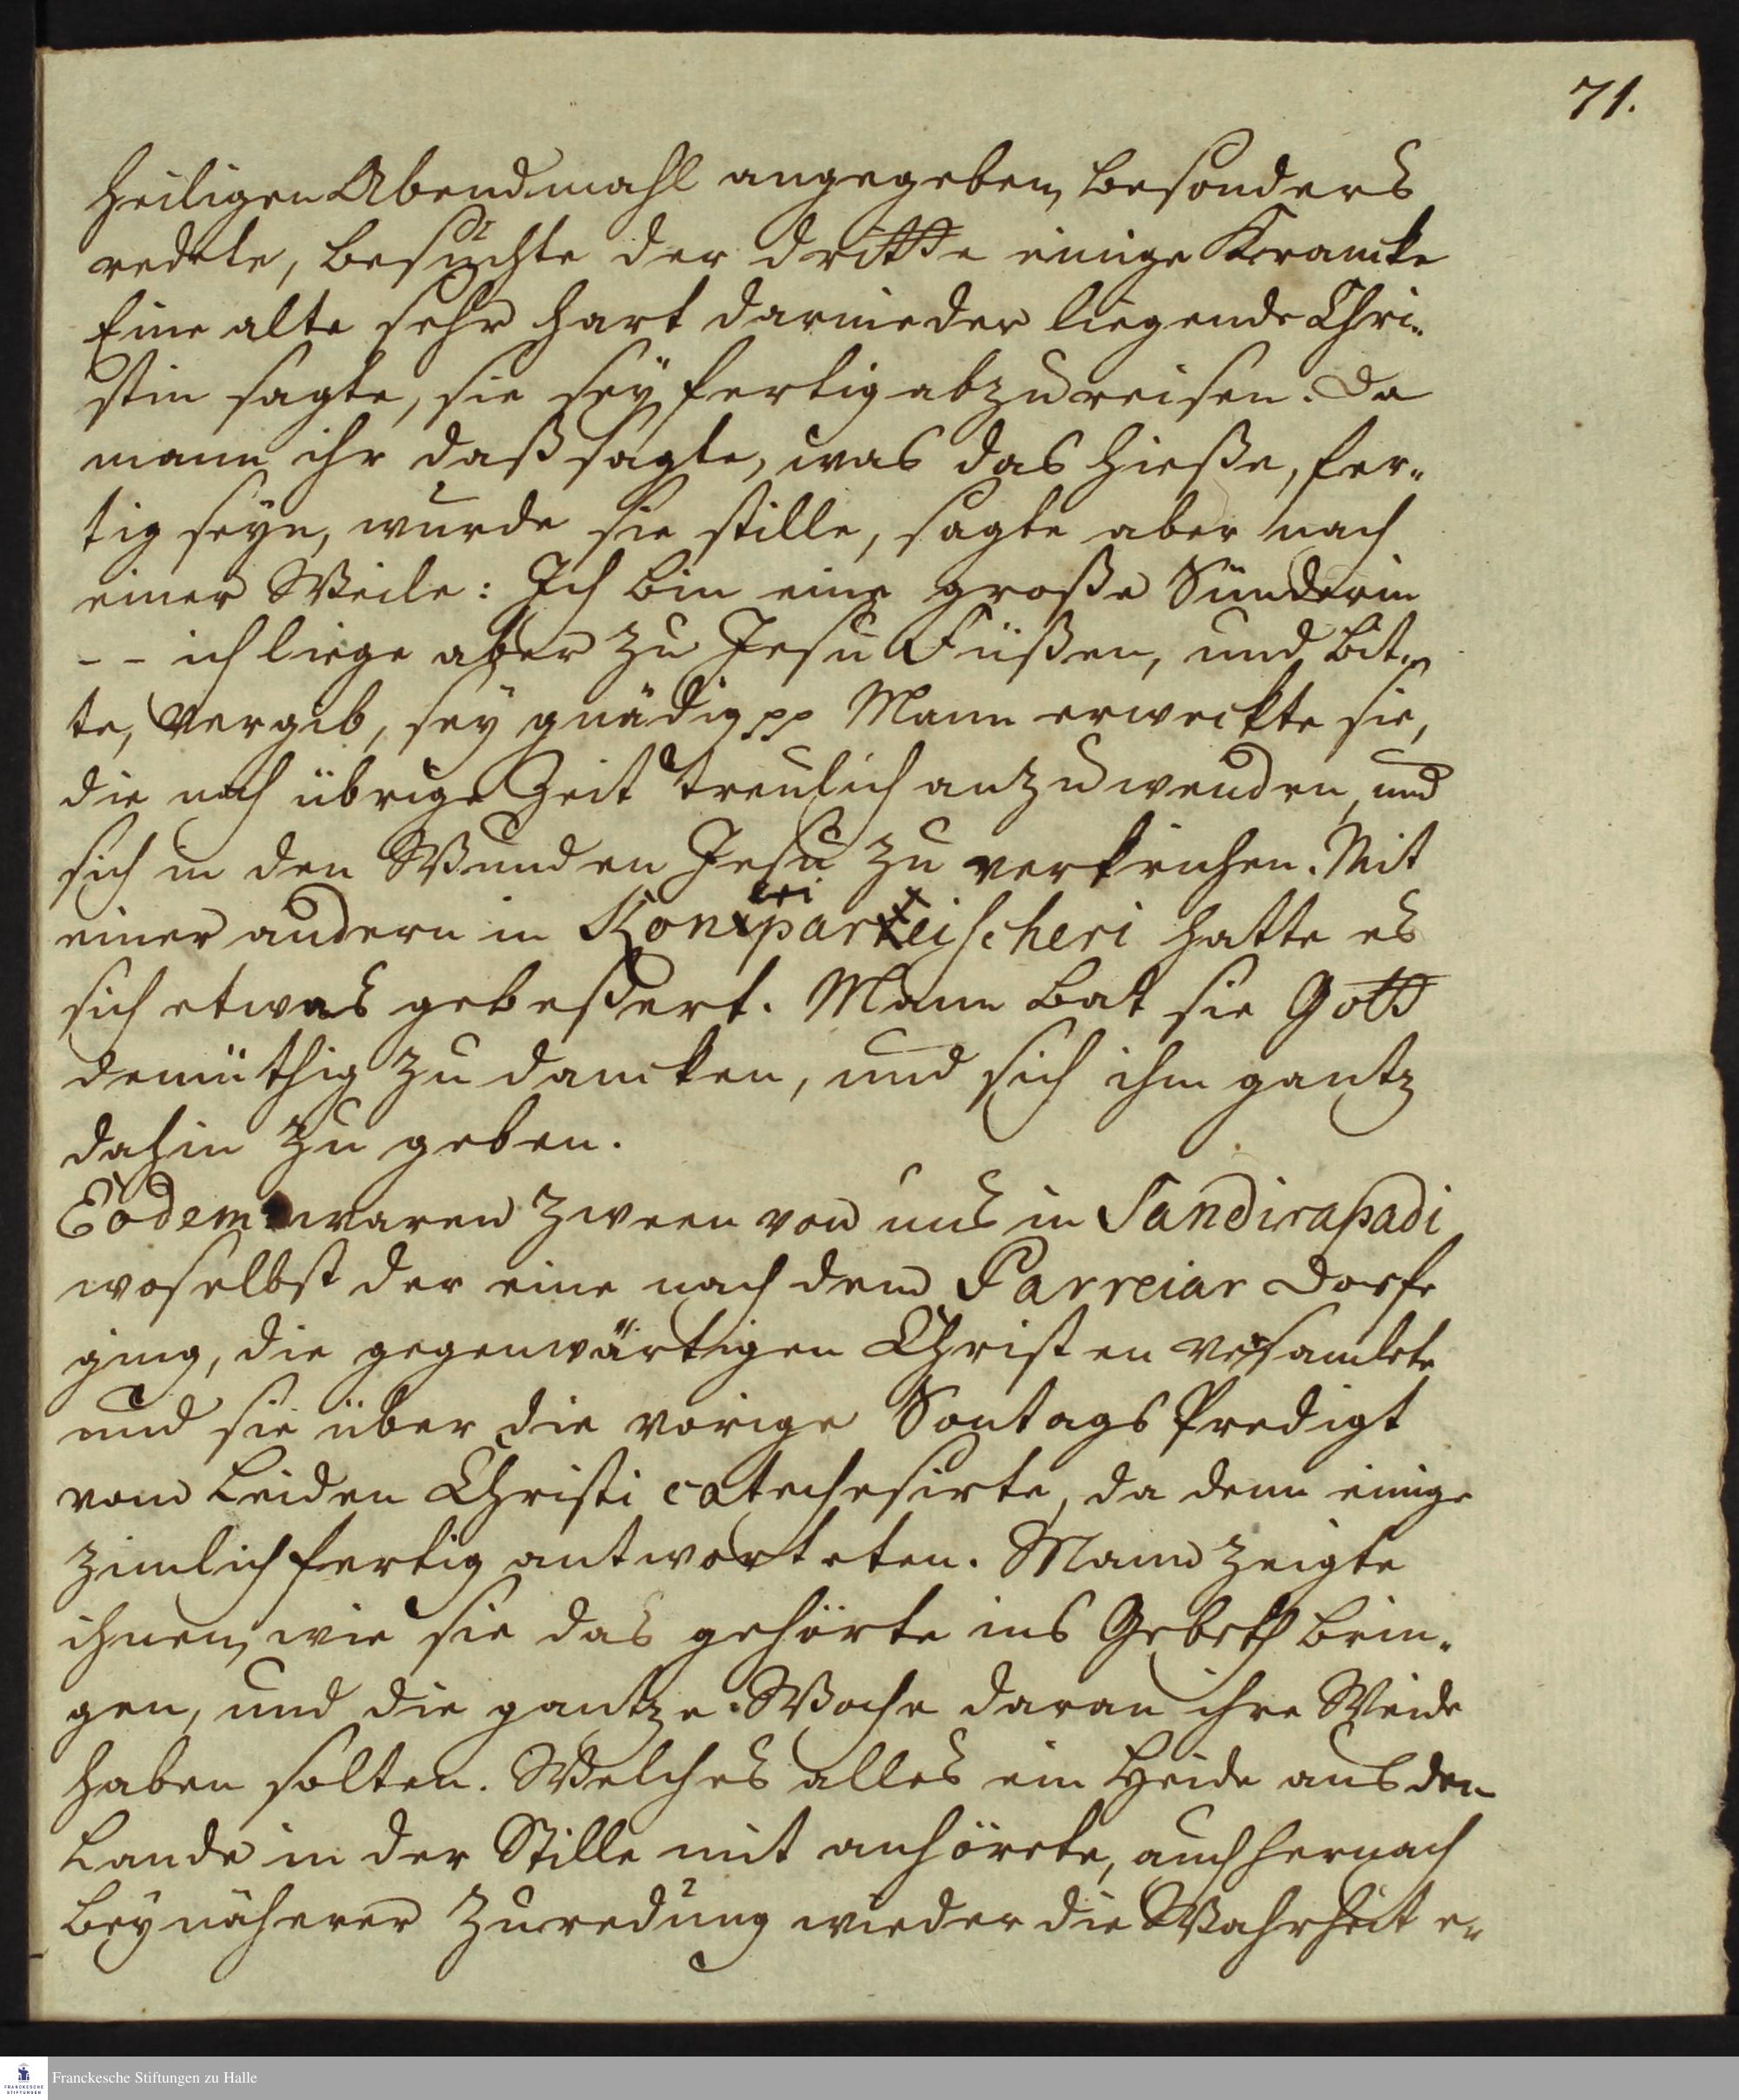 71.
heiligen Abendmahl angegeben, besonders
redete, besuchte der dritte einige Krancke
Eine alte sehr hart darnieder liegende Chri-
stin sagte, sie seÿ fertig abzureisen. Da
mann ihr daß sagte, was das hieße, fer-
tig seÿn, wurde sie stille, sagte aber nach
einer Weile: Ich bin eine große Sünderin
-- ich liege aber zu Jesu Füßen, und bit-
te, vergib, seÿ gnädig pp Mann erweckte sie,
die noch übrige Zeit treulich anzuwenden, und
sich in den Wunden Jesu zu verkriechen. Mit
einer andern in hatte es
sich etwas gebeßert. Mann bat sie Gott
demüthig zu dancken, und sich ihm gantz
dahin zu geben.
Eodem waren zween von uns in Sandirapadi
woselbst der eine nach dem Parreiar Dorfe
ging, die gegenwärtigen Christen versamlete
und sie über die vorige Sontags Predigt
vom Leiden Christi catechesirte, da denn einige
zimlich fertig antworteten. Mann zeigte
ihnen, wie sie das gehörte ins Gebeth brin-
gen, und die gantze Woche daran ihre Weide
haben solten. Welches alles ein Heide aus den
Lande in der Stille mit anhörete, auch hernach
beÿ näherer Zuredung wieder die Wahrheit e-
Franckesche Stiftungen zu Halle
FRANCKESCHE
STIFTUNGEN